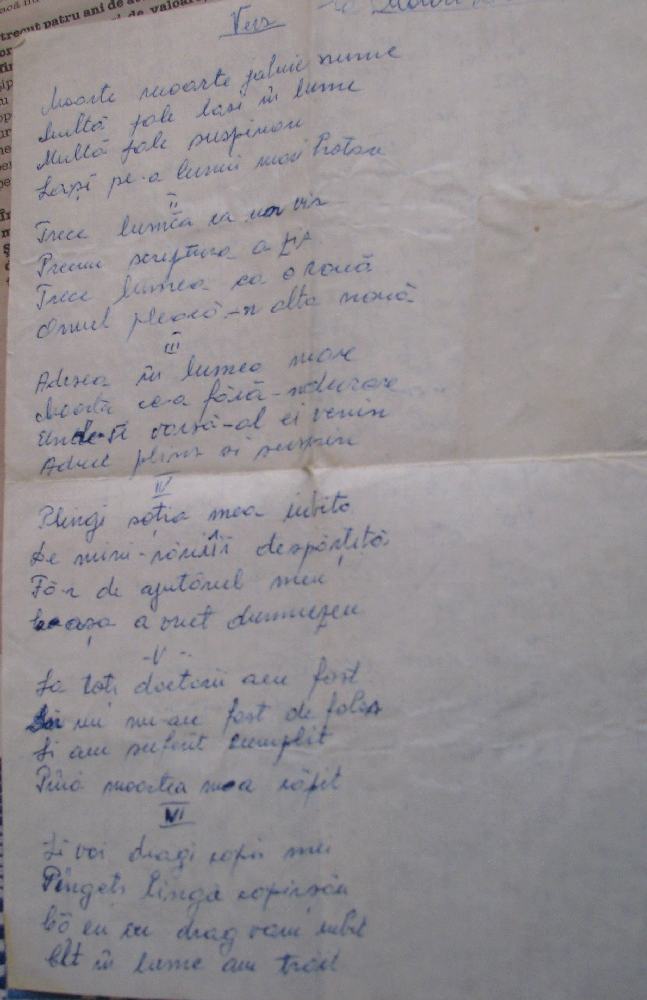 trecut patru ani de
de valoare
Vers
Moarte moarte jalnic nume
Multă jale lași în lume
Multă jale suspinare
Lași pe-a lumii mari hotare
II
Trece lumea ca un vis
Precum scriptura a zis
Trece lumea ca o rouă
Omul pleacă-n alta nouă
III
Adesea în lumea mare
Moartea ce-a fără-ndurare
Unde-și varsă-al ei venin
Aduce plîns si suspin
IV
Plîngi soția mea iubita
De mine-ai despărțită
Fă-r de ajutorul meu
Ca așa a vrut dumnezeu
-V-
La toti doctorii am fost
Si nu mi-au fost de folos
Si am suferit cumplit
Pînă moartea m-a răpit
VI
Si voi dragi copii mei
Pîngeti lîngă copîrsău
Că eu cu drag vam iubit
Cît în lume am trăit